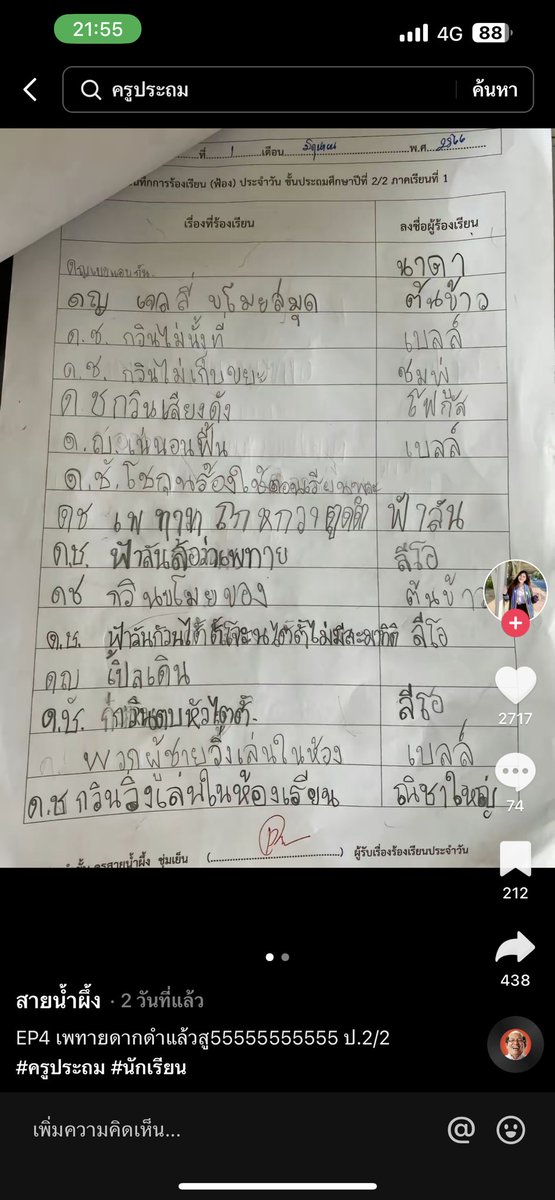 21:55
4G 88
ครูประถม
ค้นหา
ที่ 1 เดือน มิถุนายน พ.ศ. 2566
ทึกการร้องเรียน (ฟ้อง) ประจำวัน ชั้นประถมศึกษาปีที่ 2/2 ภาคเรียนที่ 1
เรื่องที่ร้องเรียน ลงชื่อผู้ร้องเรียน
นาดา
ดญ เจลลี่ ขโมยสมุด ต้นข้าว
ด.ช. กวินไม่นั่งที่ เบลล์
ด.ช. กวินไม่เก็บขยะ ชมพู่
ด ช กวินเสียงดัง โฟกัส
ด.ญ. เน่นอนฟื้น เบลล์
ด.ช.
ดช เพทาย ฟ้าลั่น
ด.ช. ฟ้าลั่นล้อว่าเพทาย ลีโอ
ดช กวินขโมยของ ต้นข้าว
ด.ช. ฟ้าลั่นกวนไตตั้ ไม่มีสะมาทิ ลีโอ
ดญ เปิ้ลเดิน
ด.ช. กวินตบหัวไตตั้. ลีโอ
พวกผู้ชายวิ่งเล่นในห้อง เบลล์
ด.ช กวินวิ่งเล่นในห้องเรียน ณิชาใหญ่
ครูสายน้ำผึ้ง ชุ่มเย็น (....................) ผู้รับเรื่องร้องเรียนประจำวัน
2717
74
212
438
สายน้ำผึ้ง · 2 วันที่แล้ว
EP4 เพทายดากดำแล้วสู55555555555 ป.2/2
#ครูประถม #นักเรียน
เพิ่มความคิดเห็น...